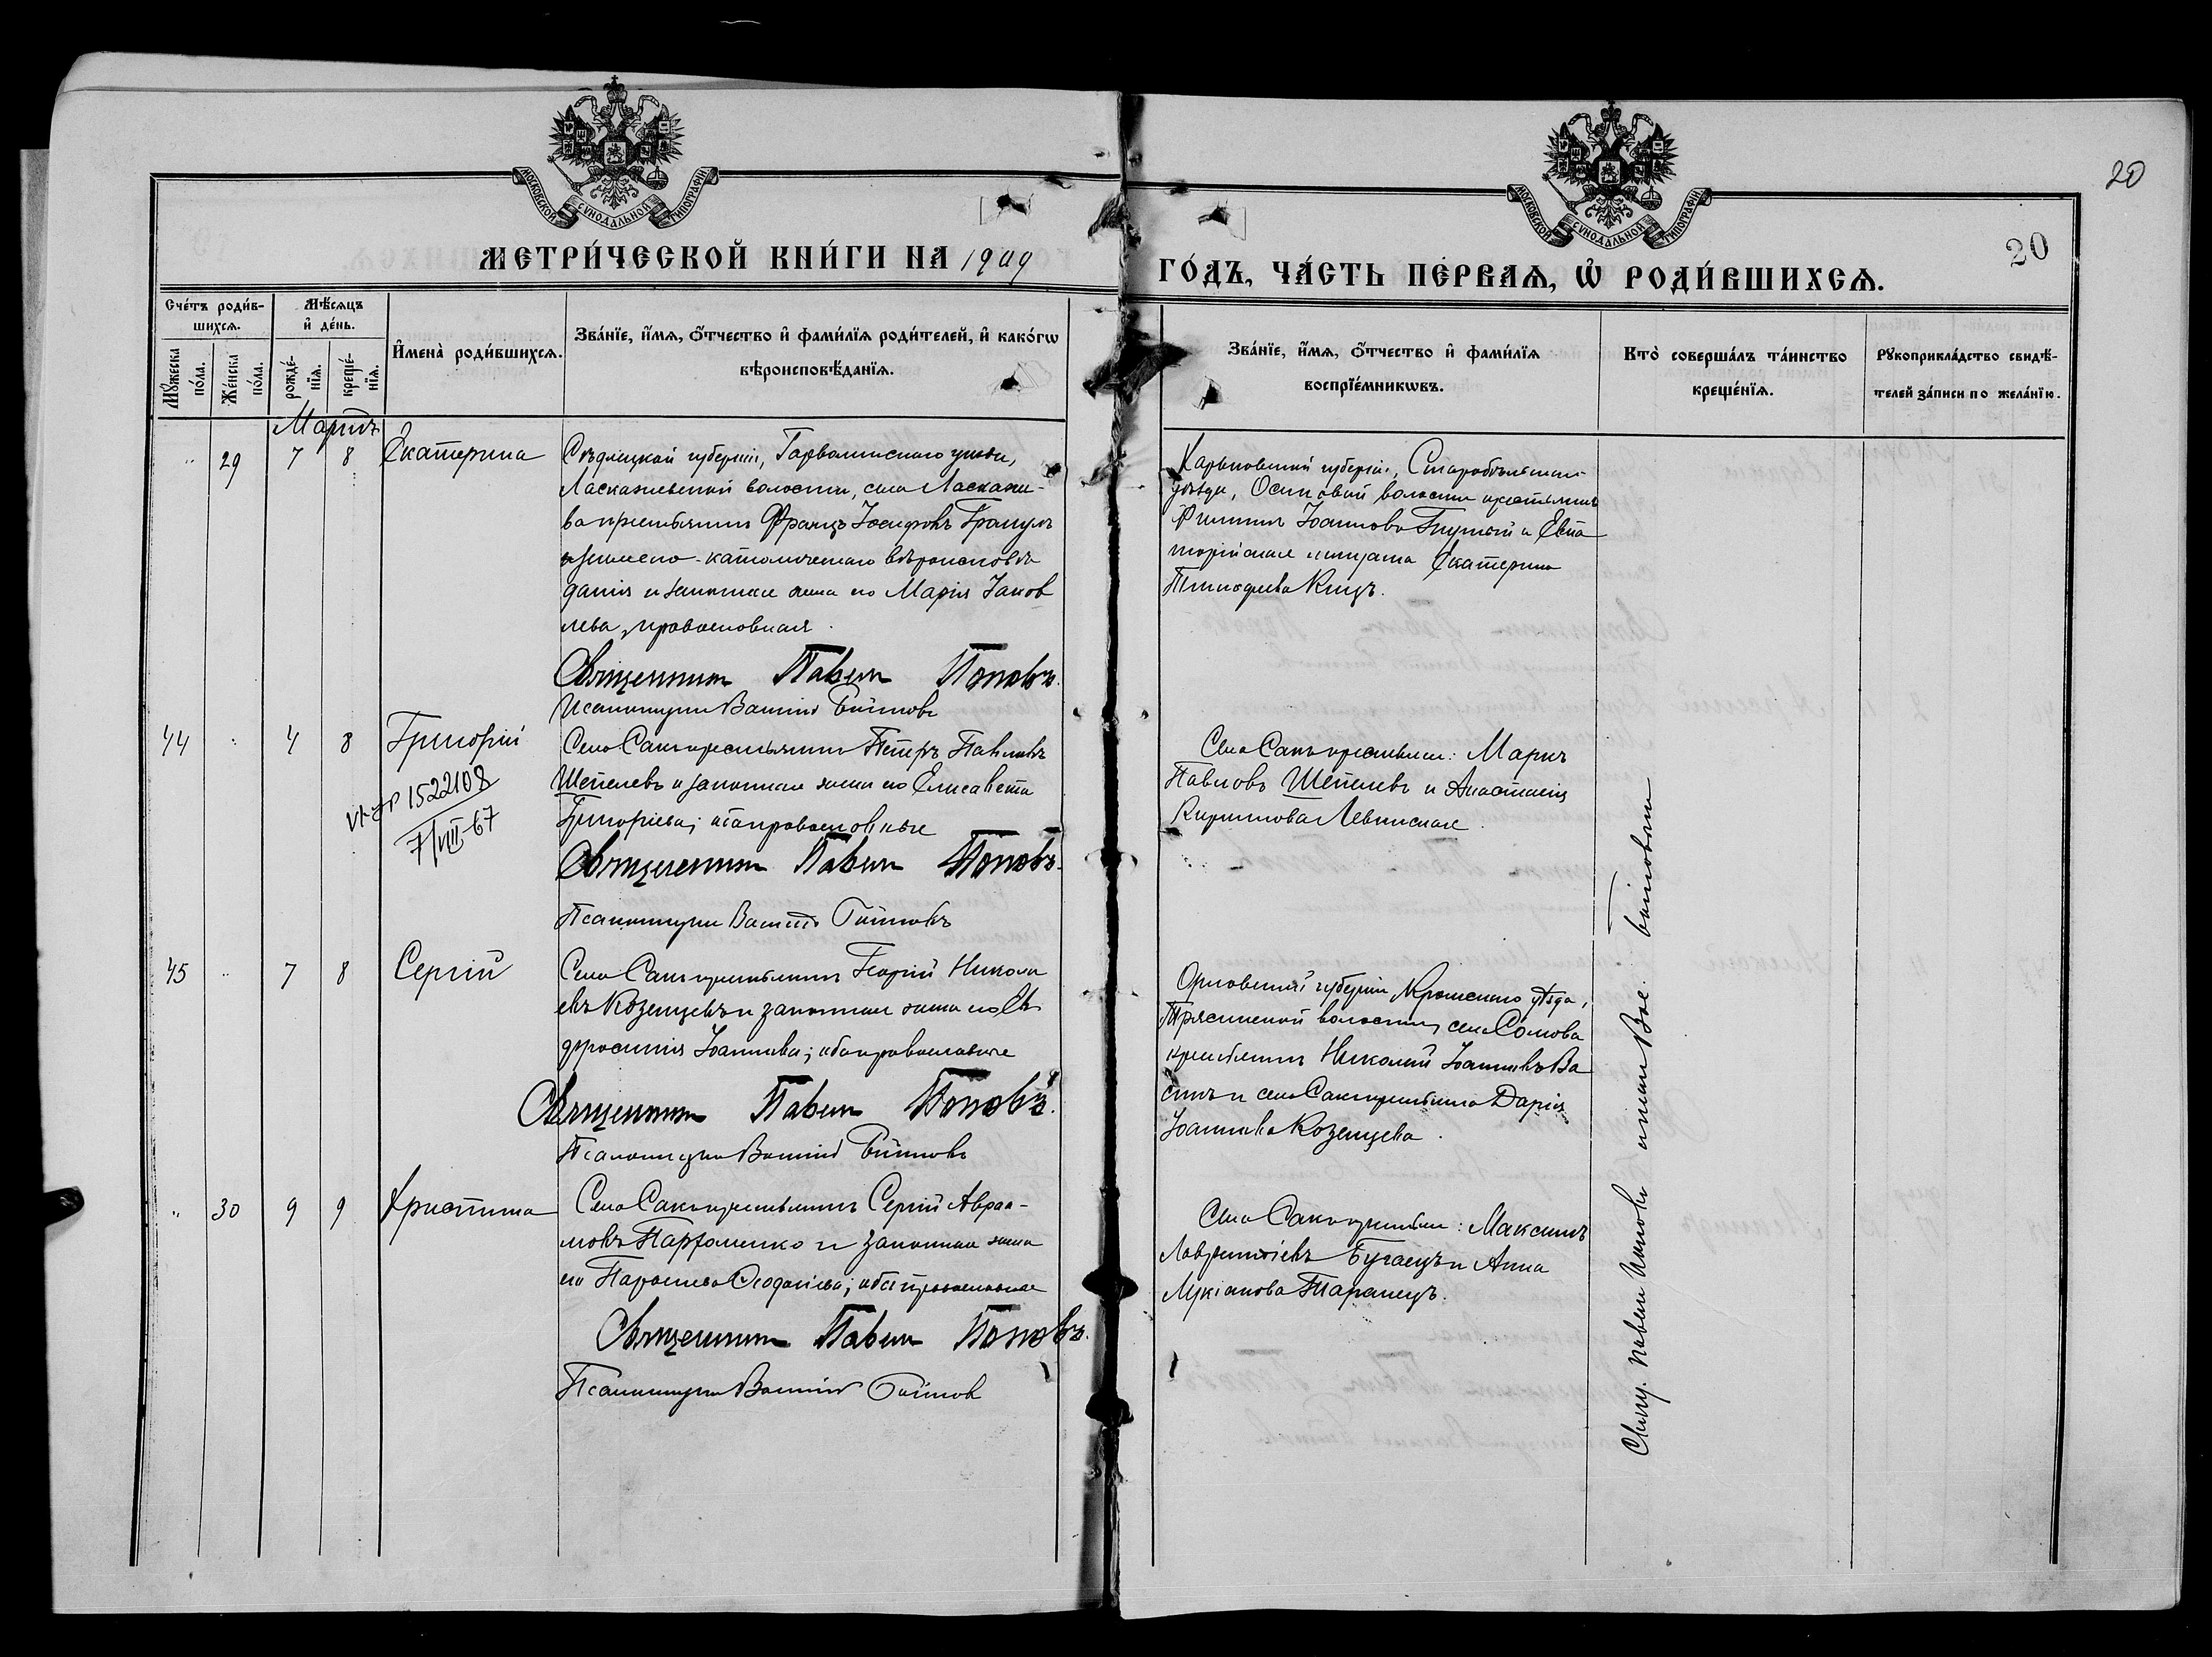 20
20
МОСКОВСКОЙ СѴНОДАЛЬНОЙ ТИПОГРАФІИ
МОСКОВСКОЙ СѴНОДАЛЬНОЙ ТИПОГРАФІИ
МЕТРИ́ЧЕСКОЙ КНИ́ГИ НА 1909
ГО́ДЪ, ЧА́СТЬ ПЕ́РВАѦ, Ѡ҆ РОДИ́ВШИХСѦ.
Сче́тъ роди́в-
шихсѧ.
Мꙋ́жеска по́ла.
Же́нска по́ла.
Мѣ́сѧцъ
и҆ де́нь.
рожде́-
нїѧ.
креще́-
нїѧ.
И҆мена̀ роди́вшихсѧ.
Зва́нїе, и҆́мѧ, ѻ҆́тчество и҆ фами́лїѧ роди́телей, и҆ како́гѡ
вѣроисповѣ́данїѧ.
Зва́нїе, и҆́мѧ, ѻ҆́тчество и҆ фами́лїѧ
воспрїе́мникѡвъ.
Кто̀ соверша́лъ та́инство
креще́нїѧ.
Рꙋкоприкла́дство свидѣ́-
телей за́писи по жела́нїю.
Мартъ
" 29 7 8 Екатерина
Сѣдлецкой губерніи, Гарволинскаго уѣзда,
Ласкажевской волости, села Ласкаже-
ва крестьянинъ Францъ Іосифовъ
римско-католическаго вѣроисповѣ
данія и законная жена его Марія Іаков
лева, православная.
Священникъ Павелъ Поповъ.
Псаломщикъ Василій
Харьковской губерніи, Старобѣльскаго
уѣзда, Осиновой волости крестьянинъ
Филиппъ Іоанновъ и Евпа
торійская мѣщанка Екатерина
Тимофеева
44 " 4 8 Григорій
VI-ЯР 1522108
7/VIII-67
Села Сакъ крестьянинъ Петръ Павловъ
Шепелевъ и законная жена его Елисавета
Григоріева; оба православные
Священникъ Павелъ Поповъ.
Псаломщикъ Василій
Села Сакъ крестьяне: Маркъ
Павловъ Шепелевъ и Анастасія
Кириллова Левинская.
45 " 7 8 Сергій
Села Сакъ крестьянинъ Георгій Никола
евъ Козенцевъ и законная жена его Ев
фросинія Іоаннова; оба православные
Священникъ Павелъ Поповъ.
Псаломщикъ Василій
Орловской губерніи Кромскаго уѣзда,
волости, села Сомова
крестьянинъ Николай Іоанновъ Ва
синъ и села Сакъ крестьянка Дарія
Іоаннова Козенцева.
" 30 9 9 Христина
Села Сакъ крестьянинъ Сергій Авраа-
мовъ Парфоменко и законная жена
его Параскева Ѳеодосіева; оба православные
Священникъ Павелъ Поповъ.
Псаломщикъ Василій
Села Сакъ крестьяне: Максимъ
Лаврентіевъ Бугаецъ и Анна
Лукіанова Таранецъ.
Свящ. Павелъ Поповъ и псал. Вас.